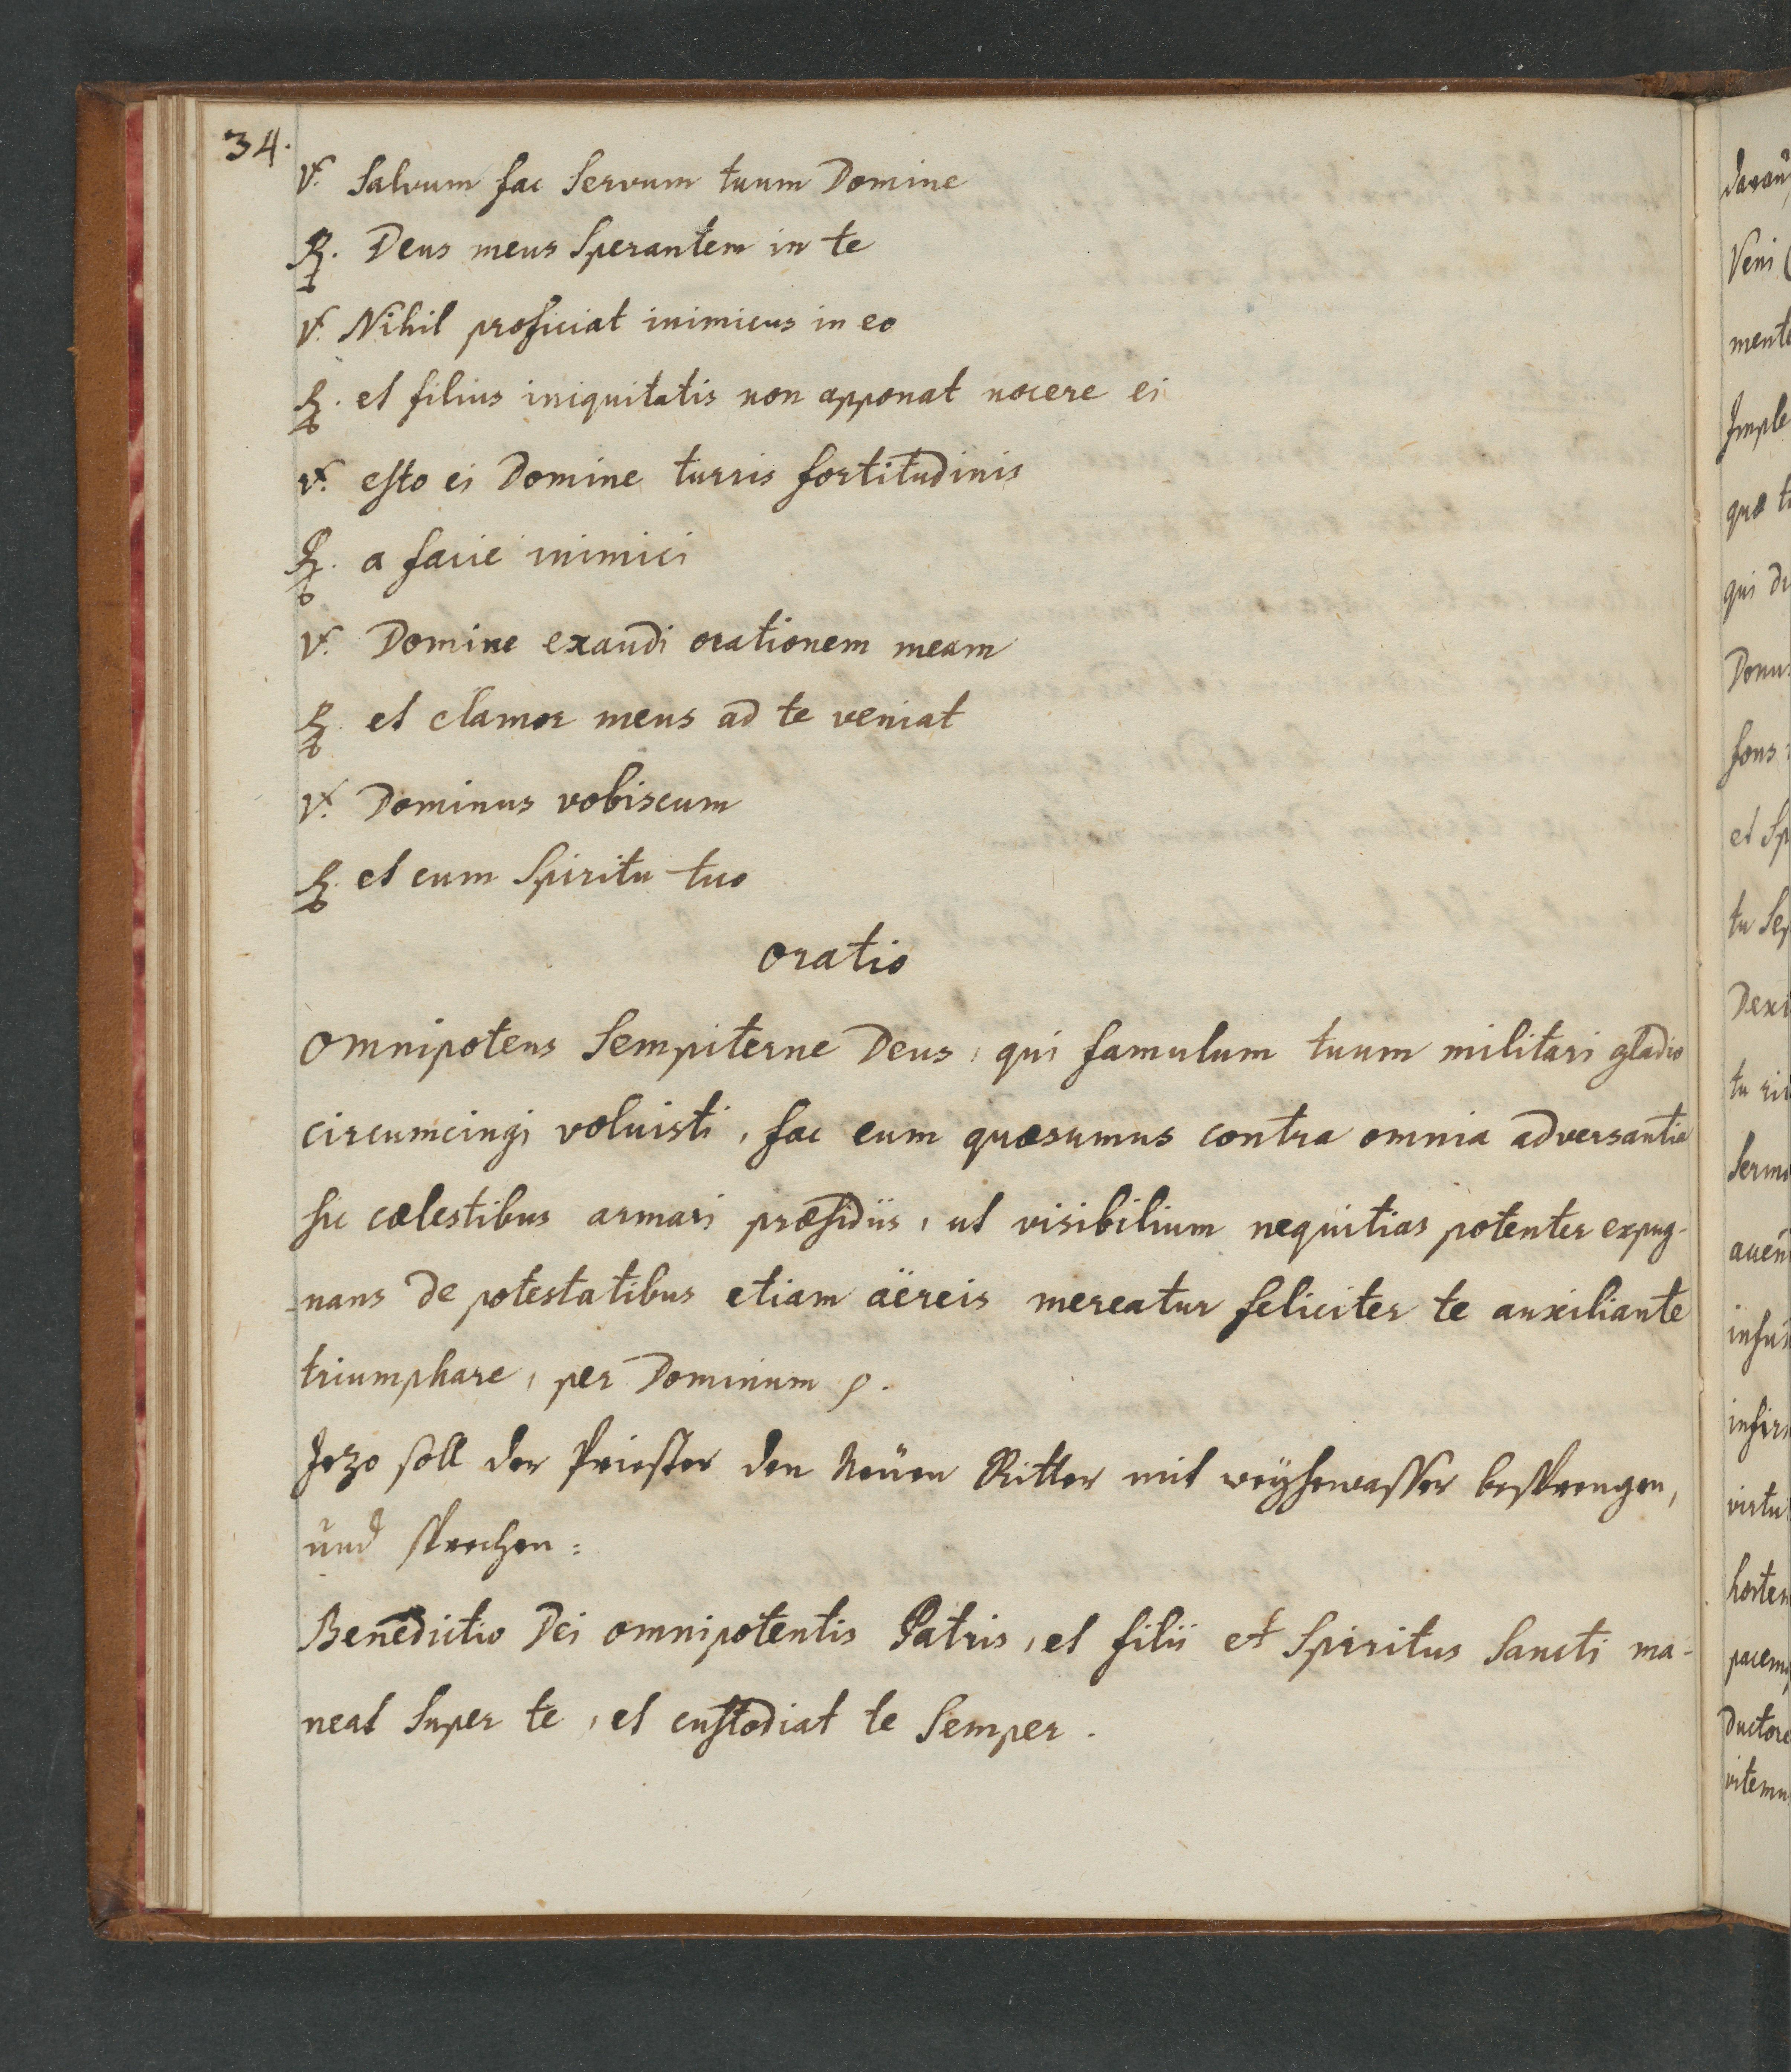 34.
℣. Salvum fac Servum tuum Domine
℟. Deus meus Sperantem in te
℣. Nihil proficiat inimicus in eo
℟. et filius iniquitatis non apponat nocere ei
℣. esto ei Domine turris fortitudinis
℟. a facie inimici
℣. Domine exaudi orationem meam
℟. et clamor meus ad te veniat
℣. Dominus vobiscum
℟. et cum Spiritu tuo
oratio
omnipotens Sempiterne Deus, qui famulum tuum militari gladio
circumcingi voluisti, fac eum quæsumus contra omnia adversantia
sic cælestibus armari præsidiis, ut visibilium nequitias potenter expug-
-nans de potestatibus etiam aëreis mereatur feliciter te auxiliante
triumphare, per Dominum
Jezo soll der Priester den Neüen Ritter mit weÿhewasser besprengen,
und sprechen:
Benedictio Dei omnipotentis Patris, et filii et Spiritus Sancti ma-
neat Super te, et custodiat te Semper.
Veni
Imple
qui
fons
et
tu
tu